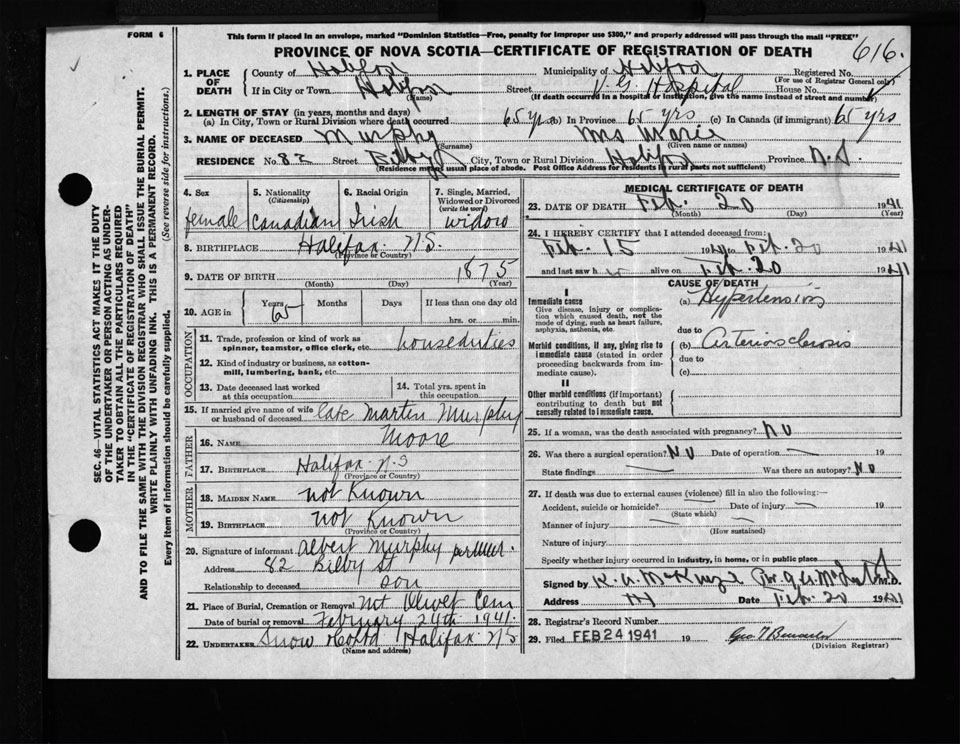 FORM 6
This form if placed in an envelope, marked "Dominion Statistics—Free, penalty for improper use $300," and properly addressed will pass through the mail "FREE"
PROVINCE OF NOVA SCOTIA—CERTIFICATE OF REGISTRATION OF DEATH
616.
1. PLACE OF DEATH County of Halifax Municipality of Halifax Registered No.
(For use of Registrar General only)
If in City or Town Halifax Street V. G. Hospital House No.
(Name) (If death occurred in a hospital or institution, give the name instead of street and number)
2. LENGTH OF STAY (in years, months and days)
(a) In City, Town or Rural Division where death occurred 65 yrs (b) In Province 65 yrs (c) In Canada (if immigrant) 65 yrs
3. NAME OF DECEASED Murphy Mrs Marie
(Surname) (Given name or names)
RESIDENCE No. 82 Street Bilby City, Town or Rural Division Halifax Province N.S.
(Residence means usual place of abode. Post Office Address for Residents in rural parts not sufficient)
SEC. 46—VITAL STATISTICS ACT MAKES IT THE DUTY
OF THE UNDERTAKER OR PERSON ACTING AS UNDER-
TAKER TO OBTAIN ALL THE PARTICULARS REQUIRED
IN THE "CERTIFICATE OF REGISTRATION OF DEATH"
AND TO FILE THE SAME WITH THE DIVISION REGISTRAR WHO SHALL ISSUE THE BURIAL PERMIT.
WRITE PLAINLY WITH UNFADING INK. THIS IS A PERMANENT RECORD.
Every item of information should be carefully supplied. (See reverse side for instructions).
4. Sex
female
5. Nationality
(Citizenship)
Canadian
6. Racial Origin
Irish
7. Single, Married,
Widowed or Divorced
(write the word)
widow
8. BIRTHPLACE Halifax N.S.
(Province or Country)
9. DATE OF BIRTH 1875
(Month) (Day) (Year)
10. AGE in Years 65 Months Days If less than one day old
hrs. or min.
OCCUPATION
11. Trade, profession or kind of work as
spinner, teamster, office clerk, etc. houseduties
12. Kind of industry or business, as cotton-
mill, lumbering, bank, etc.
13. Date deceased last worked
at this occupation
14. Total yrs. spent in
this occupation
15. If married give name of wife
or husband of deceased late Martin Murphy
FATHER
16. NAME Moore
17. BIRTHPLACE Halifax N.S
(Province or Country)
MOTHER
18. MAIDEN NAME not Known
19. BIRTHPLACE not Known
(Province or Country)
20. Signature of informant Albert Murphy per
Address 82 Bilby St
Relationship to deceased son
21. Place of Burial, Cremation or Removal Mt Olivet Cem
Date of burial or removal February 24th 1941.
22. UNDERTAKER Snow & Co Ltd Halifax N S
(Name and address)
MEDICAL CERTIFICATE OF DEATH
23. DATE OF DEATH Feb. 20 1941
(Month) (Day)
24. I HEREBY CERTIFY that I attended deceased from:
Feb. 15 1941 to Feb. 20 1941
and last saw h alive on Feb. 20 1941
CAUSE OF DEATH
I
Immediate cause
Give disease, injury or complica-
tion which caused death, not the
mode of dying, such as heart failure,
asphyxia, asthenia, etc.
(a) Hypertension
due to
Morbid conditions, if any, giving rise to
immediate cause (stated in order
proceeding backwards from im-
mediate cause).
(b) Arteriosclerosis
due to
(c)
II
Other morbid conditions (if important)
contributing to death but not
causally related to immediate cause.
25. If a woman, was the death associated with pregnancy? No
26. Was there a surgical operation? No Date of operation
State findings Was there an autopsy? No
27. If death was due to external causes (violence) fill in also the following:—
Accident, suicide or homicide? Date of injury 19
(State which)
Manner of injury
(How sustained)
Nature of injury
Specify whether injury occurred in industry, in home, or in public place
Signed by K. A. McKenzie M.D.
Address Date Feb. 20 1941
28. Registrar's Record Number
29. Filed FEB 24 1941 19
(Division Registrar)